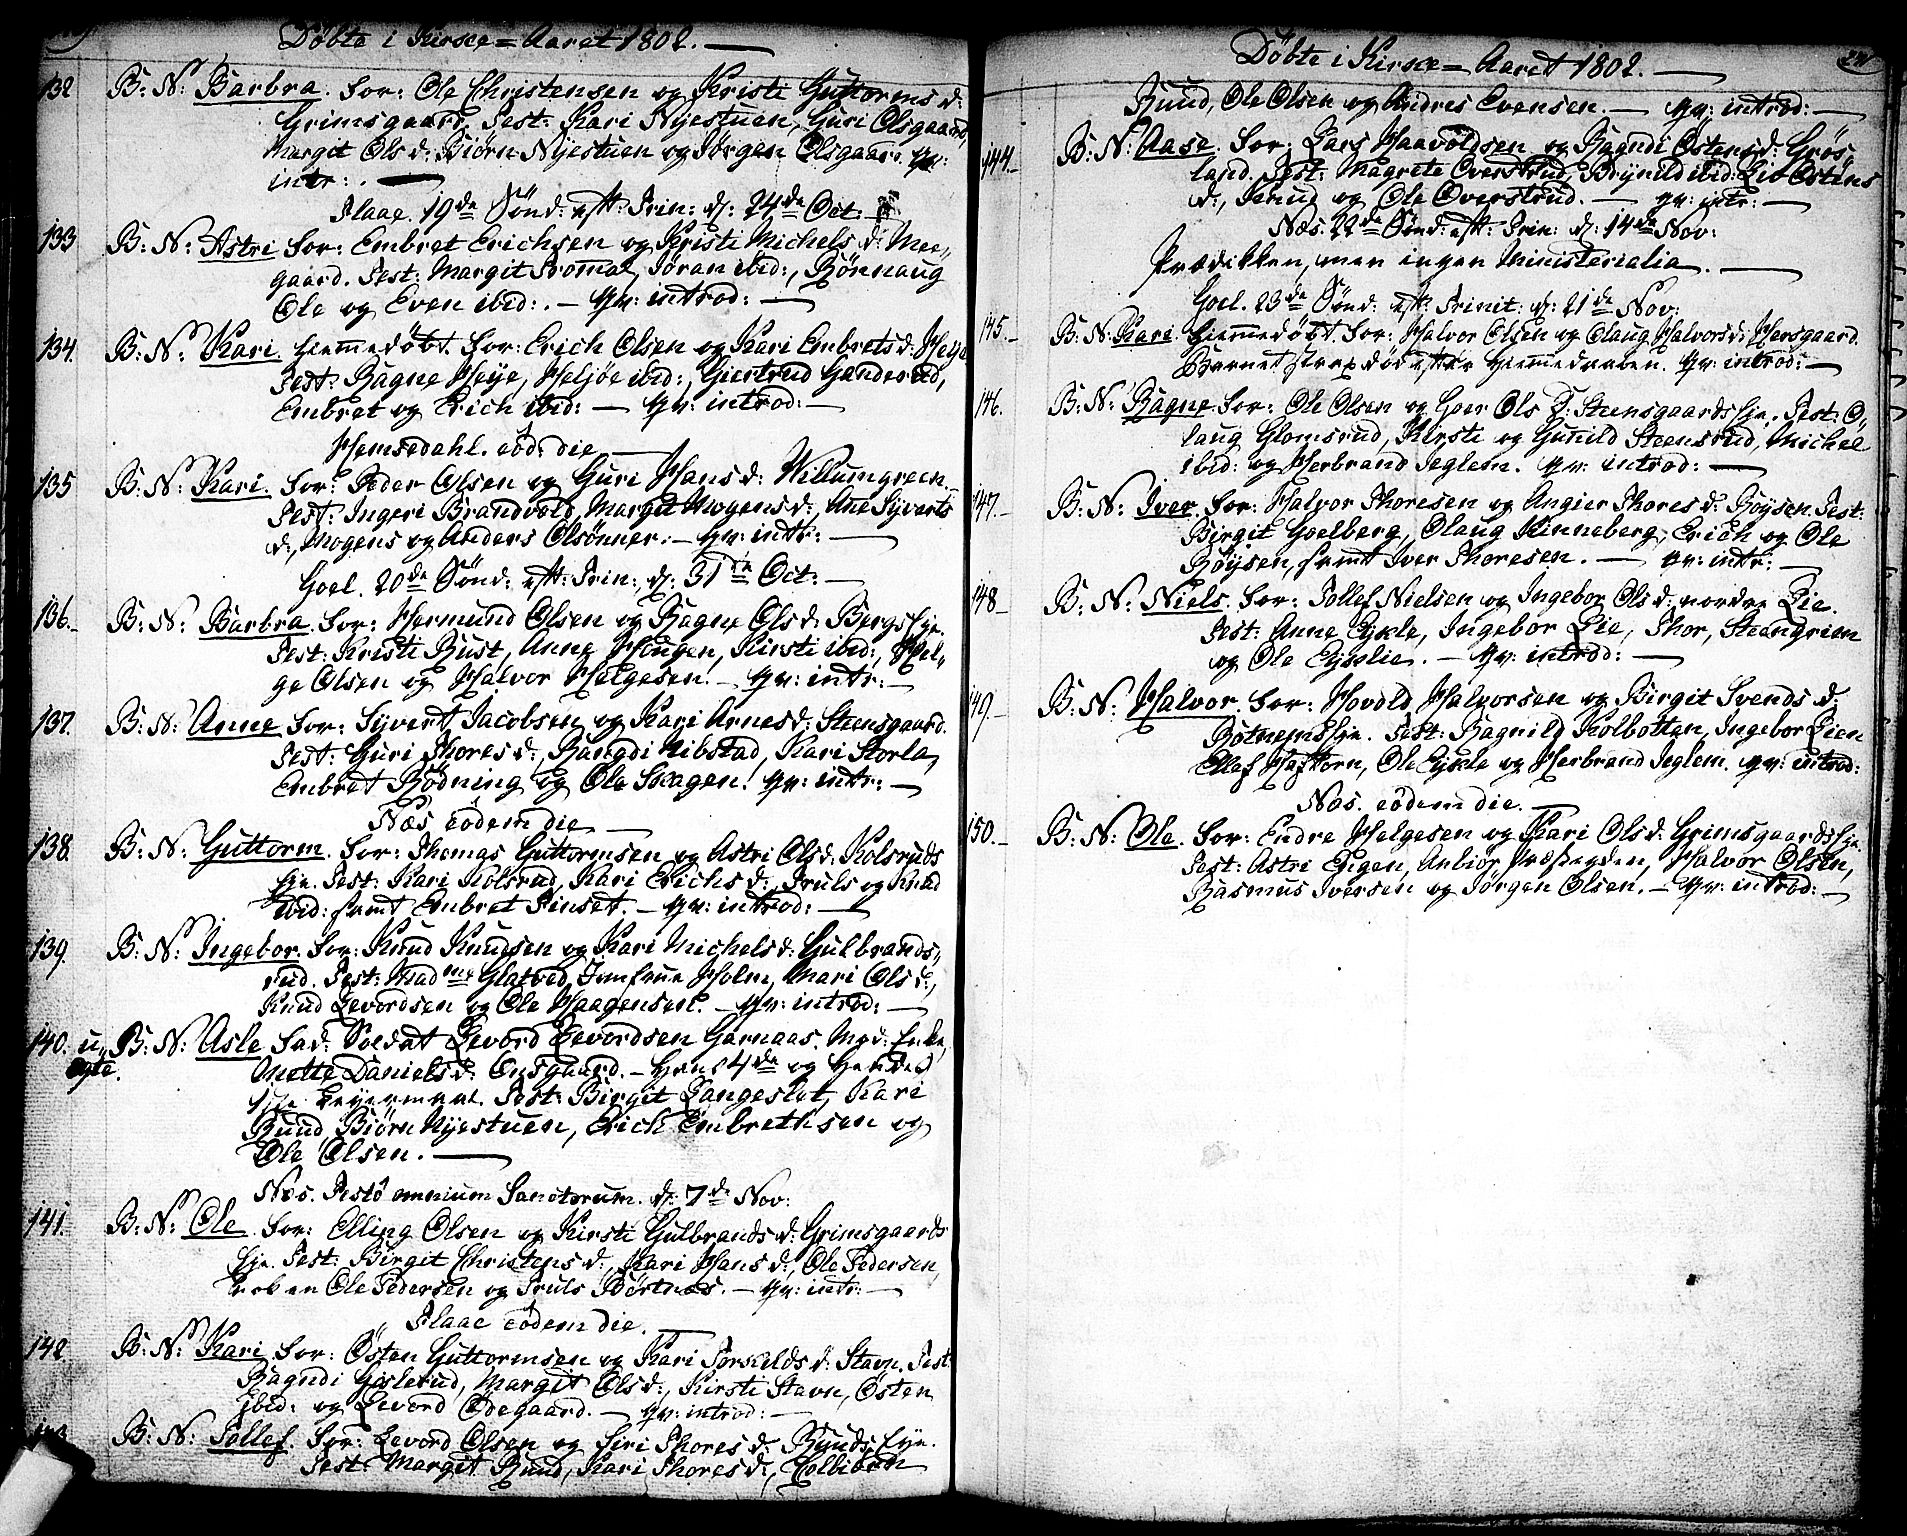 Döbte i Kirsce = Aaret 1802. —
132 B: N: Barbra. For: Ole Christensen og Kristi Guttorms d:
Grimsgaard. Test: Kari Nyestuen, Guri Olsgaard,
Margit Ols d: Biörn Nyestuen og Jörgen Olsgaard. qv:
intr: . —
Flaae. 19de Sönd: eft: Trin: d: 24de Oct:
133 B: N: Astri For: Embret Erichsen og Kristi Michels d: Mee-
gaard. Test: Margit Trommal, Jöran ibid:, Rönnaug
Ole og Even ibid: . — qv: introd: —
134. B: N: Kari hiemmedöbt. For: Erich Olsen og Kari Embrets d: Heye
Test: Ragne Heye, Heljöe ibid:, Giertrud Ganderud,
Embret og Erich ibid: — qv: introd: —
Hemsedahl. eod: die —
135 B: N: Kari. For: Peder Olsen og Guri Hans d: Willumgreen.
Test: Ingeri Brandvold, Margit Mogens d:, Ane Syverts
d:, Mogens og Anders Olsönner. — qv: intr: —
Goel. 20de Sönd: eft: Trin:, d: 31te Oct: —
136. B: N: Barbra. For: Hermund Olsen og Ragne Ols d: Bergs Eje.
Test: Kristi Rust, Anne Haugen, Kirsti ibid:, Hel-
ge Olsen og Halvor Helgesen. — qv: intr: —
137. B: N: Anne For: Syvert Jacobsen og Kari Arnes d: Steensgaard.
Test: Guri Thores d:, Rangdi Nibstad, Kari Storla,
Embret Rödning og Ole Skagen. qv: intr: —
Næs eodem die —
138. B: N: Guttorm. For: Thomas Guttormsen og Astri Ols d: Kolsruds
Eje. Test: Kari Kolsrud, Kari Erichs d:, Truls og Knud
ibid: samt Embret Sinset. — qv: introd: —
139. B: N: Ingebor. For: Knud Knudsen og Kari Michels d: Gulbrands-
rud. Test: Madme Glatved, Jomfrue Holm, Mari Ols d:,
Knud Levordsen og Ole Haagensen. — qv: introd: —
140. u- B: N: Asle Fad: Soldat Levord Levordsen Garnaas. Mod: Enke,
ægte. Anette Daniels d: Onsgaard. — Hans 4de og Hendes
1ste Leyermaal. Test: Birgit Langeslet, Kari
Ruud Biörn Nyestuen, Erich Embrethsen og
Ole Olsen. —
Næs. Festö omnium Sanctorum. d: 7de Nov:
141. B: N: Ole For: Elling Olsen og Kirsti Gulbrands d: Grimsgaards
Eje. Test: Birgit Christens d:, Kari Hans d:, Ole Pedersen,
Ole Pedersen og Truls Börtnæs. — qv: intr: —
Flaae eodem die. —
142. B: N: Kari For: Östen Guttormsen og Kari Torskelds d: Stavn. Test
Ragndi Gislerud, Margit Ols d:, Kirsti Stavn, Östen
ibid: og Levord Ödegaard. — qv: introd: —
B: N: Tollef. For: Levord Olsen og Siri Thores d: Ruuds Eje.
Test: Margit Ruud, Kari Thores d:, Kolbiörn
Döbte i Kirsce = Aaret 1802. —
Ruud, Ole Olsen og Andres Evensen. — qv: introd: —
144. B: N: Aase. For: Lars Haavoldsen og Ragndi Östens d: Grös-
land. Test: Magrete Overstrud, Brynild ibid: Liv Östens
d:, Knud og Ole Overstrud. — qv: intr: —
Næs. 22de Sönd: eft: Trin: d: 14de Nov:
Prædikken, men ingen Ministerialia. —
Goel. 23de Sönd: eft: Trinit: d: 21de Nov:
145. B: N: Kari. hiemmedöbt. For: Halvor Olsen og Olaug Halvors d: Hersgaard.
Barnet strax död efter hiemmedaaben. qv: introd: —
146. B: N: Ragne. For: Ole Olsen og Goer Ols D: Steensgaards Eje. Test: O-
laug Glomsrud, Kirsti og Gunild Steensrud, Michel
ibid: og Herbrand Jeglem. qv: introd: —
147. B: N: Iver. For: Halvor Thoresen og Angier Thores d: Röysen. Test:
Birgit Goelberg, Olaug Kinneberg, Erich og Ole
Röysen, samt Iver Thoresen. — qv: intr: —
148 B: N: Niels. For: Tollef Nielsen og Ingebor Ols d: nordre Lie.
Test: Anne Eykle, Ingebor Lie, Thor, Steengrim
og Ole Eyklie. — qv: introd: —
149. B: N: Halvor. For: Hovold Halvorsen og Birgit Svends d:
Rotnems Eje. Test: Ragnild Kolbotten, Ingebor Lien
Ellef Haftorn, Ole Eykle og Herbrand Jeglem. qv: introd:
Næs. eodem die. —
150. B: N: Ole. For: Endre Helgesen og Kari Ols d: Grimsgaards Eje.
Test: Astri Engen, Anbiör Præsteyden, Halvor Olsen,
Rasmus Iversen og Jörgen Olsen. — qv: introd: —